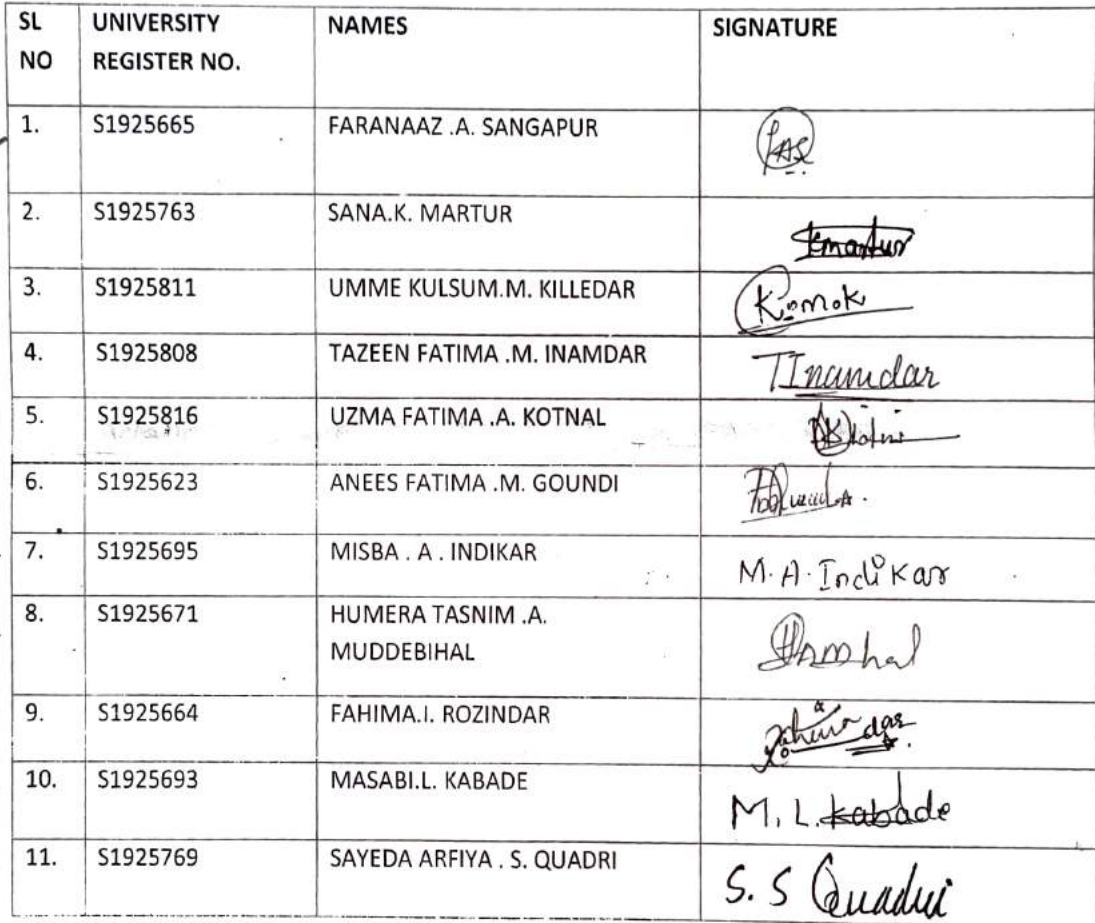 SL NO UNIVERSITY REGISTER NO. NAMES SIGNATURE
1. S1925665 FARANAAZ .A. SANGAPUR
2. S1925763 SANA.K. MARTUR Kmartur
3. S1925811 UMME KULSUM.M. KILLEDAR
4. S1925808 TAZEEN FATIMA .M. INAMDAR TInamdar
5. S1925816 UZMA FATIMA .A. KOTNAL
6. S1925623 ANEES FATIMA .M. GOUNDI
7. S1925695 MISBA . A . INDIKAR M.A.Indikar
8. S1925671 HUMERA TASNIM .A.
MUDDEBIHAL
9. S1925664 FAHIMA.I. ROZINDAR
10. S1925693 MASABI.L. KABADE M. L. Kabade
11. S1925769 SAYEDA ARFIYA . S. QUADRI S. S Quadri